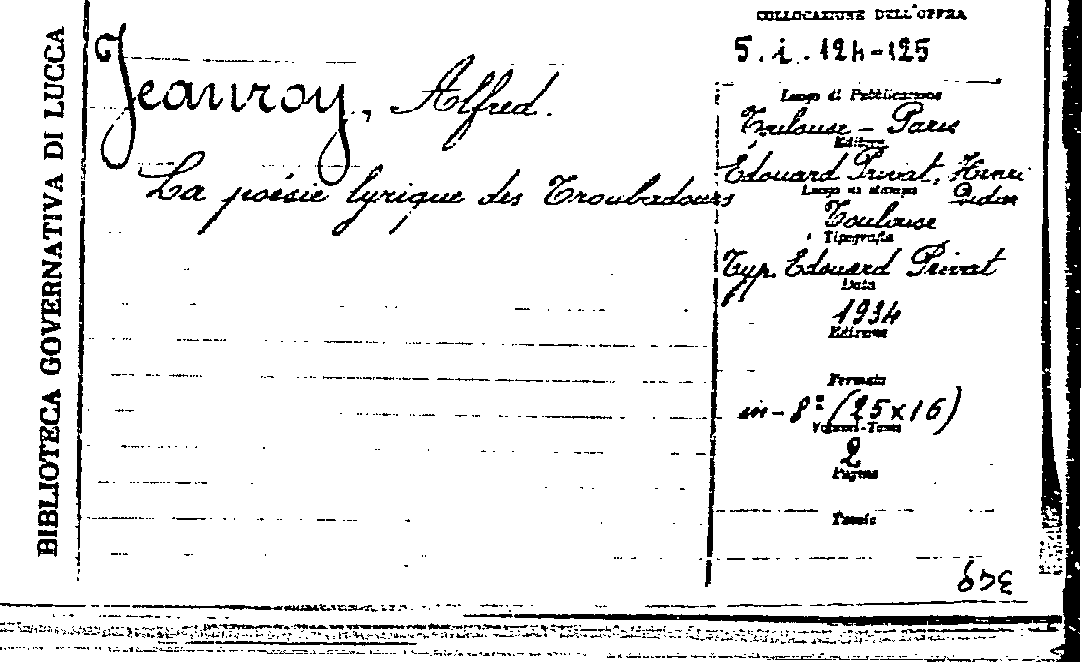 BIBLIOTECA GOVERNATIVA DI LUCCA
Jeanroy, Alfred.
La poésie lyrique des Troubadours
COLLOCAZIONE DELL'OPERA
5. i. 124-125
Luogo di Pubblicazione
Toulouse - Paris
Editore
Édouard Privat, Henri
Didier
Luogo di stampa
Toulouse
Tipografia
Typ. Édouard Privat
Data
1934
Edizione
Formato
in-8º (25x16)
Volumi-Tomi
2
Pagine
Tavole
349